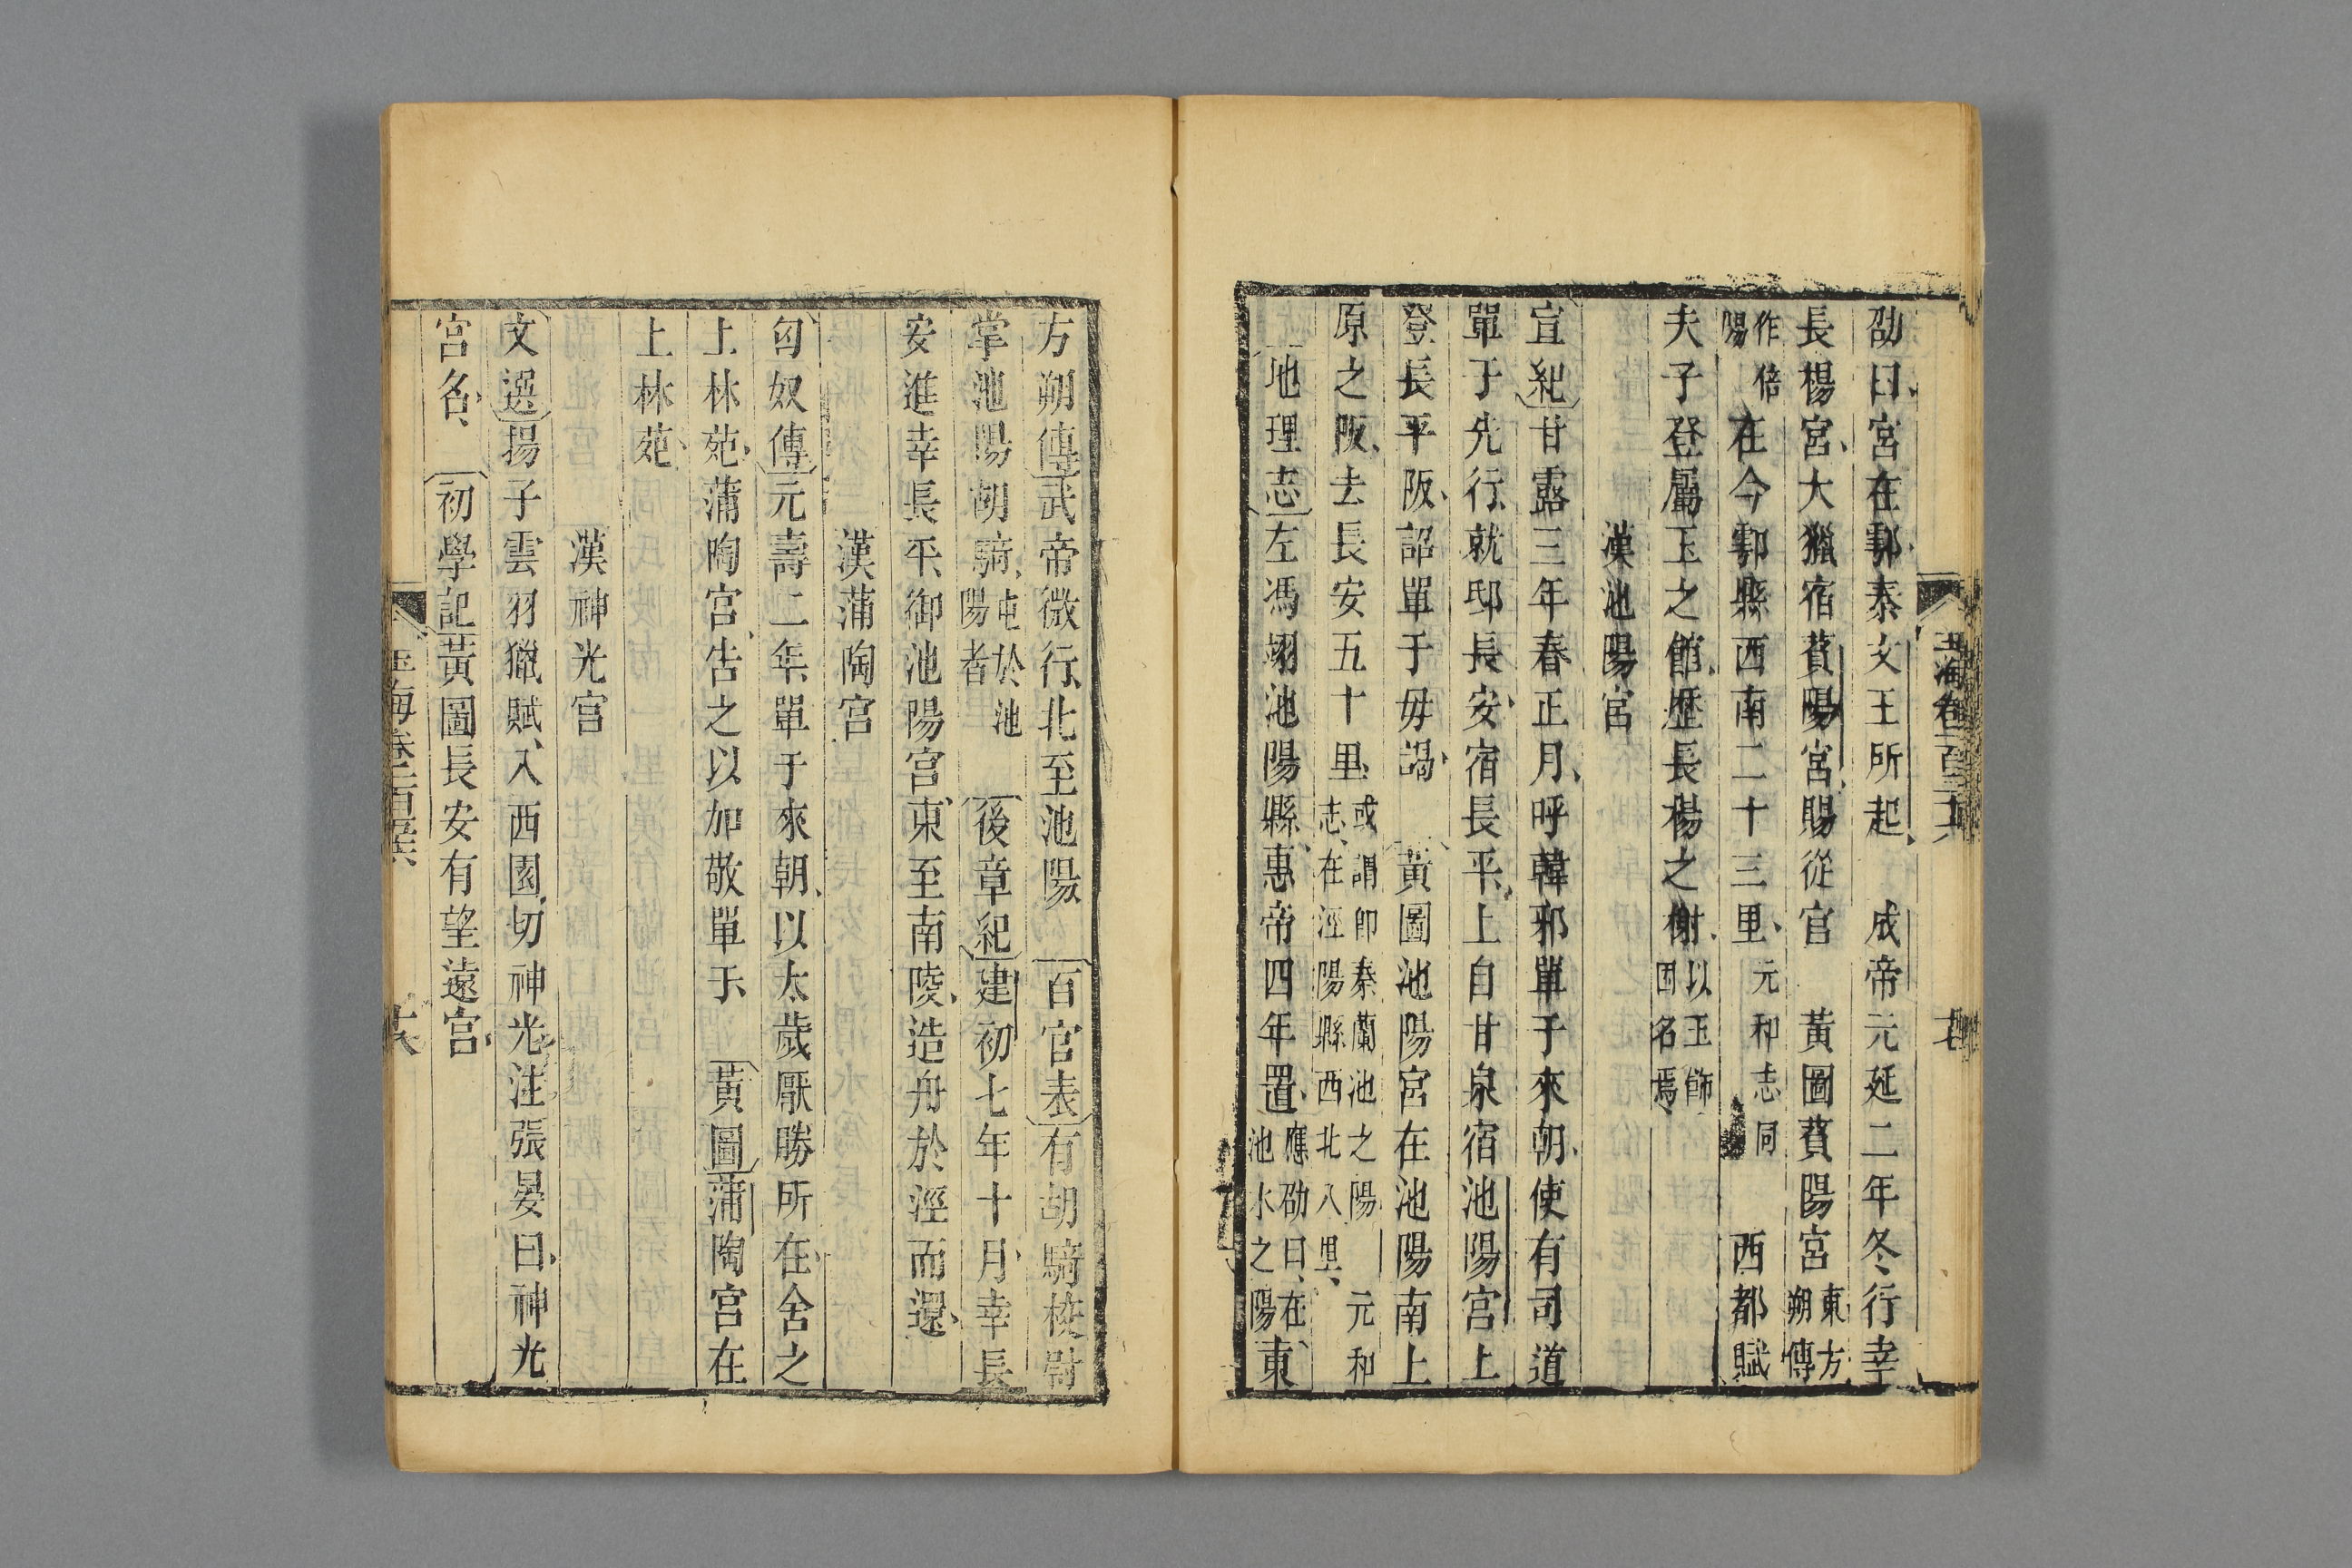 劭曰宮在鄠秦文王所起　成帝元延二年冬行幸
長楊宮大獵宿萯陽宮賜從官　黃圖萯陽宮東方朔傳
作倍陽在今鄠縣西南二十三里元和志同　西都賦
夫子登屬玉之館歷長楊之榭以玉飾因名焉
漢池陽宮
宣紀甘露三年春正月呼韓邪單于來朝使有司道
單于先行就邸長安宿長平上自甘泉宿池陽宮上
登長平阪詔單于毋謁　黃圖池陽宮在池陽南上
原之阪去長安五十里或謂即秦蘭池之陽　元和志在涇陽縣西北八里
地理志左馮翊池陽縣惠帝四年置應劭曰在池水之陽東
方朔傳武帝微行北至池陽　百官表有胡騎校尉
掌池陽胡騎屯於池陽者　後章紀建初七年十月幸長
安進幸長平御池陽宮東至南陵造舟於涇而還
漢蒲陶宮
匈奴傳元壽二年單于來朝以太歲厭勝所在舍之
上林苑蒲陶宮告之以加敬單于　黃圖蒲陶宮在
上林苑
漢神光宮
文選揚子雲羽獵賦入西園切神光注張晏曰神光
宮名　初學記黃圖長安有望遠宮